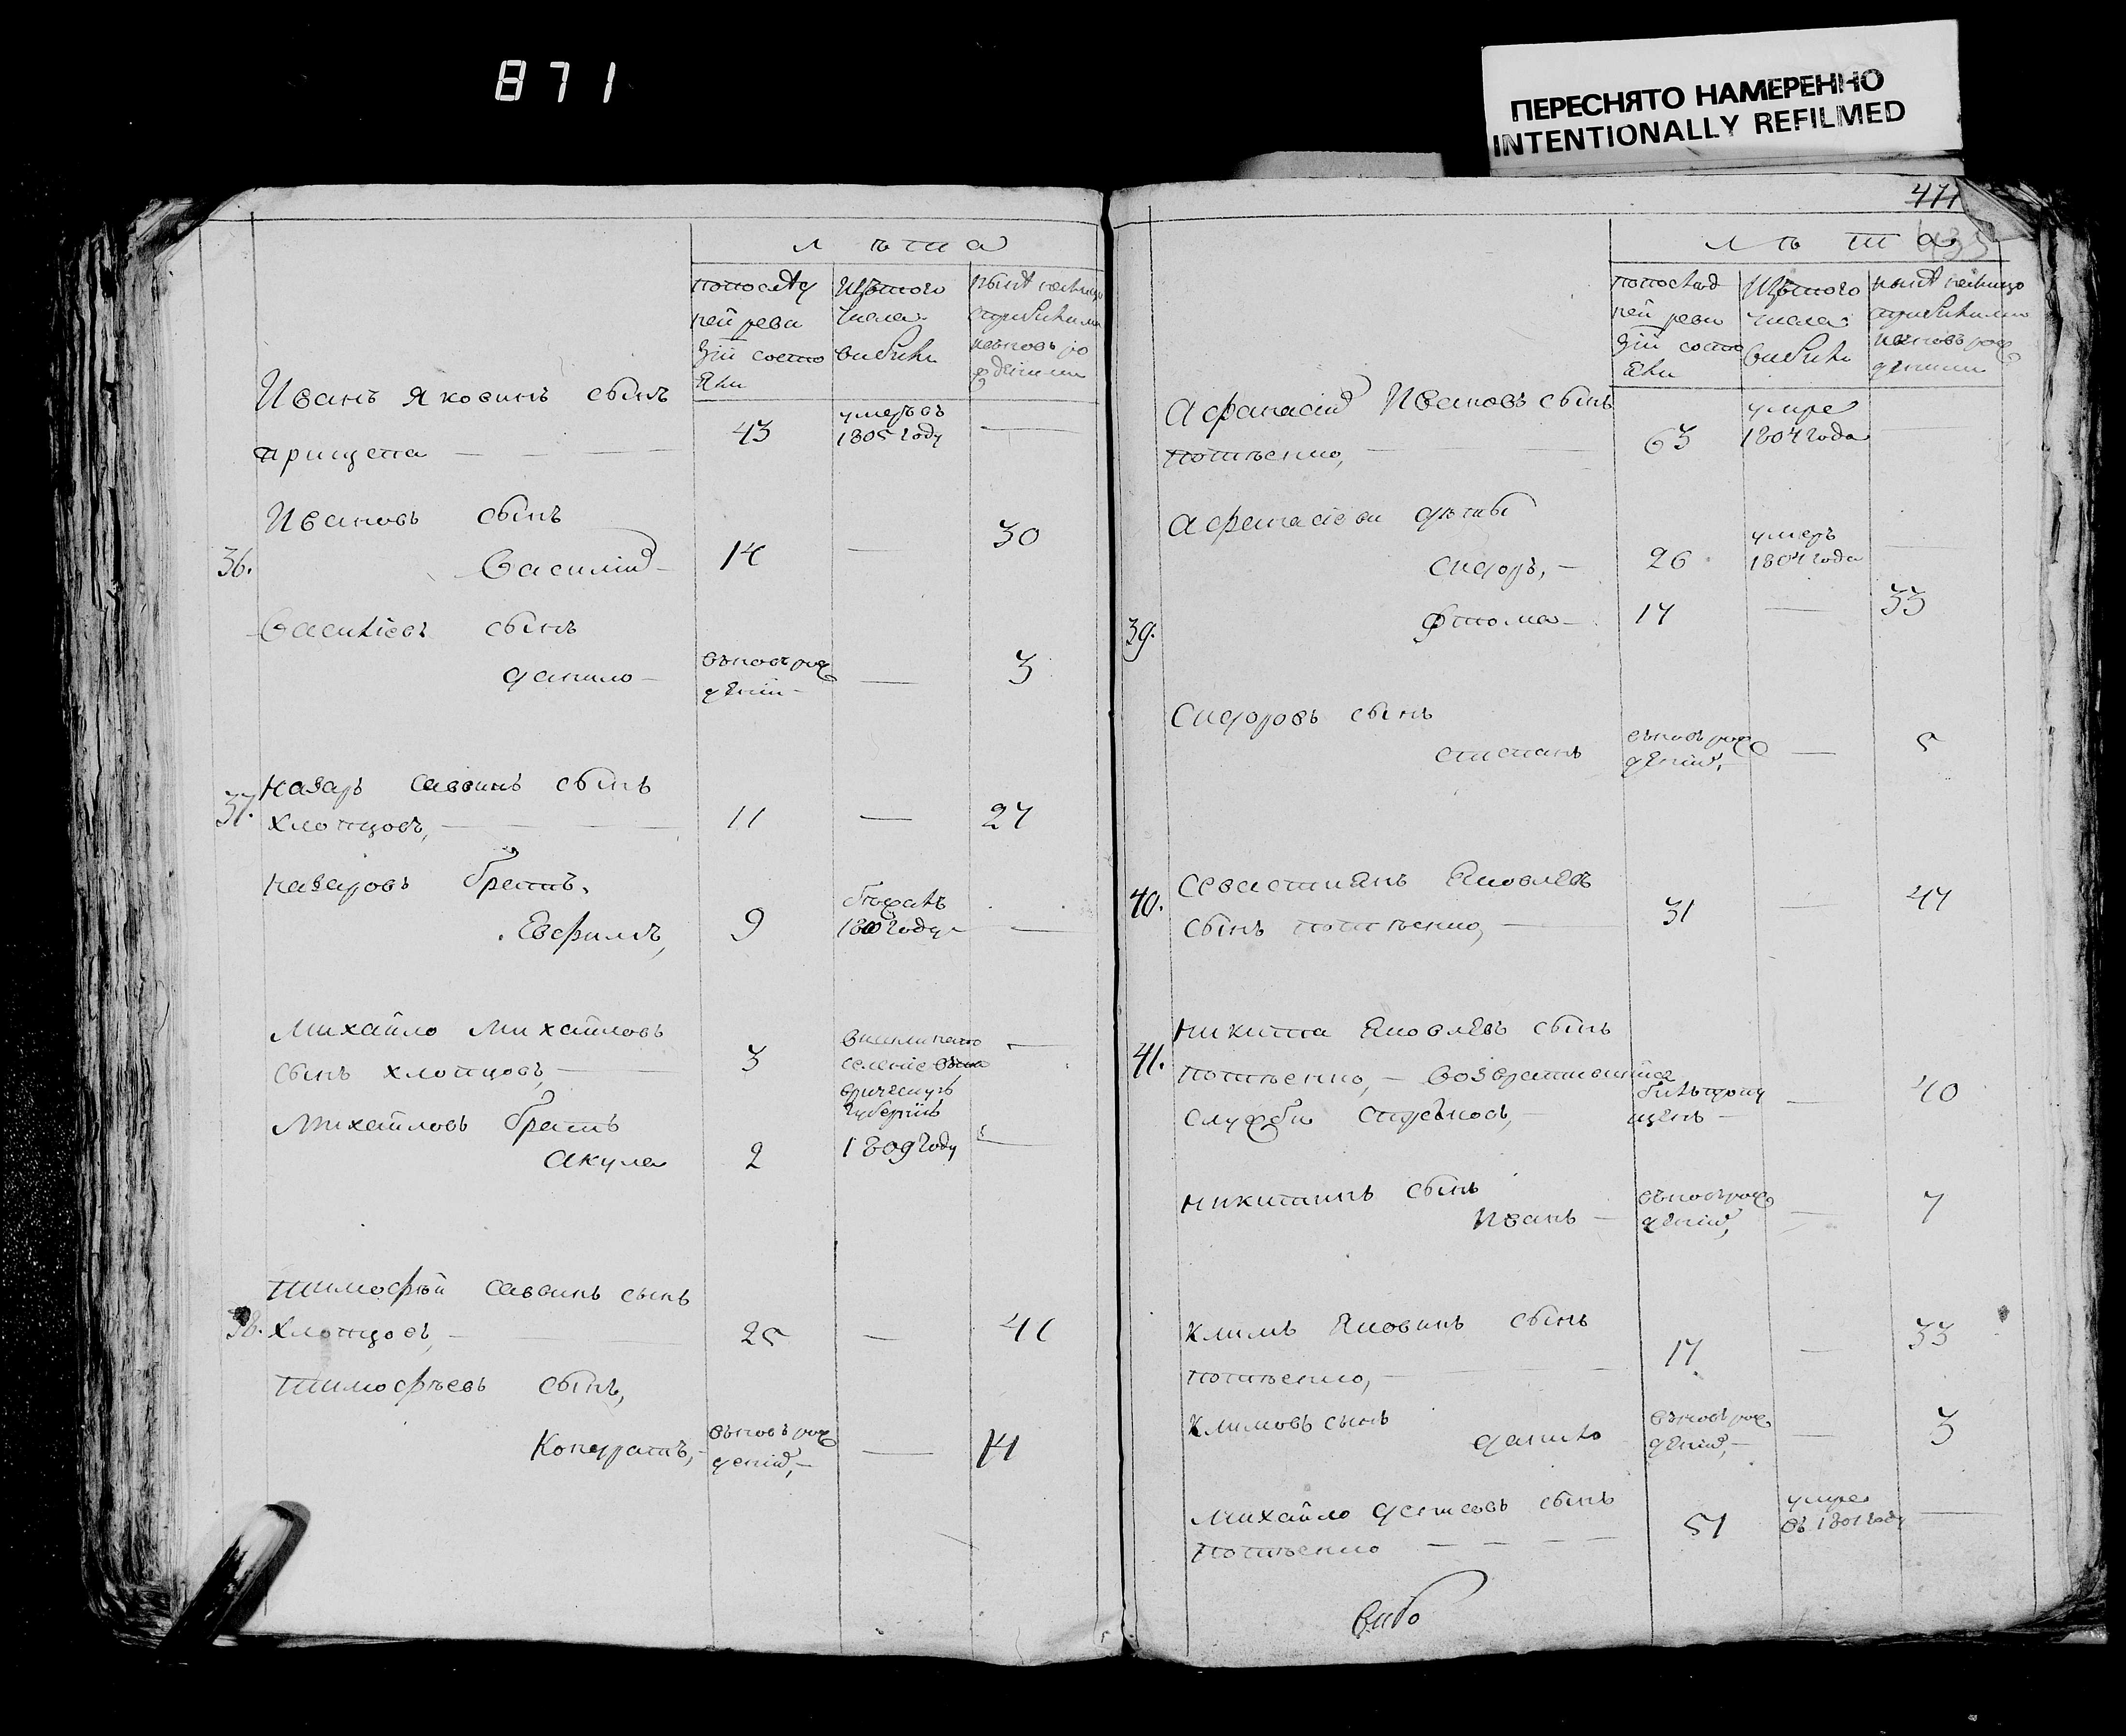 871
ПЕРЕСНЯТО НАМЕРЕННО
INTENTIONALLY REFILMED
лѣта
попослѣд
ней реви
зіи состо
яли
Изтого
числа
выбыли
Иванъ Яковинъ сынъ
прищепа
43
умеръ въ
1805 году
Ивановъ сынъ
36.
Василій
14
30
Василіевъ сынъ
данило
вновь рож
деніи
3
Назаръ Саввинъ сынъ
37.
Хлопцовъ,
11
27
Назаровъ братъ,
Евфимъ,
9
бѣжалъ
1800 году
Михайло Михайловъ
сынъ хлопцовъ,
3
селеніе
губерніи
Михайловъ братъ
акула
2
1809 году
Тимофѣй Саввинъ сынъ
38. Хлопцовъ,
25
41
Тимофѣевъ сынъ,
Кондратъ,
вновь рож
деній,
14
471
435
лѣта
попослѣд
ней реви
зіи состо
яли
Изтого
числа
выбыли
Афанасій Ивановъ сынъ
потѣенко,
63
умре
1804 года
Афанасіеви дѣти
Сидоръ,
26
умеръ
1804 года
39.
Фтома
17
33
Сидоровъ сынъ
степанъ
вновь рож
деній,
5
40.
Севастиянъ Яковлевъ
сынъ потѣенко,
31
47
41.
Никита Яковлевъ сынъ
потѣенко, — возвратившийся
службы
былъ пропу
щенъ
40
Никитинъ сынъ
Иванъ
вновь рож
деній,
7
Климъ Яковинъ сынъ
потѣенко,
17
33
Климовъ сынъ
данило
вновь рож
деній,
3
Михайло денисовъ сынъ
потѣенко
51
умре
въ 1801 году